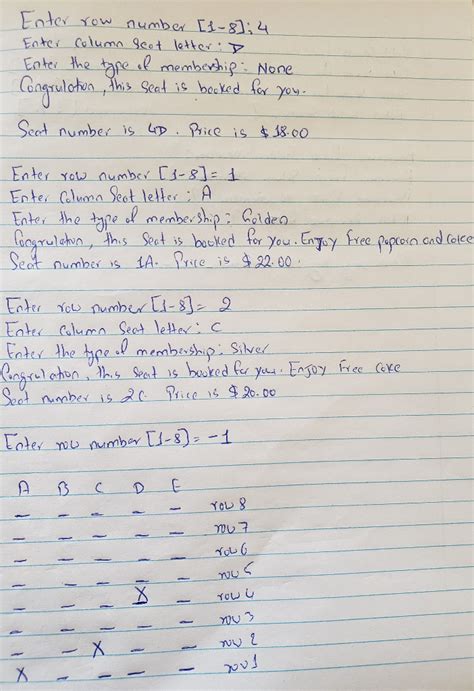 Enter row number [1-8]: 4
Enter Column Seat letter: D
Enter the type of membership: None
Congrulation, this Seat is booked for you.
Seat number is 4D. Price is $18.00
Enter row number [1-8]= 1
Enter Column Seat letter: A
Enter the type of membership: Golden
Congrulation, this Seat is booked for you. Enjoy free popcorn and coke
Seat number is 1A. Price is $22.00.
Enter row number [1-8]= 2
Enter Column Seat letter: C
Enter the type of membership: Silver
Congrulation, this Seat is booked for you. Enjoy Free Coke
Seat number is 2C. Price is $20.00
Enter row number [1-8]= -1
A B C D E
_ _ _ _ _ row 8
_ _ _ _ _ row 7
_ _ _ _ _ row 6
_ _ _ _ _ row 5
_ _ _ X _ row 4
_ _ _ _ _ row 3
_ _ X _ _ row 2
X _ _ _ _ row 1